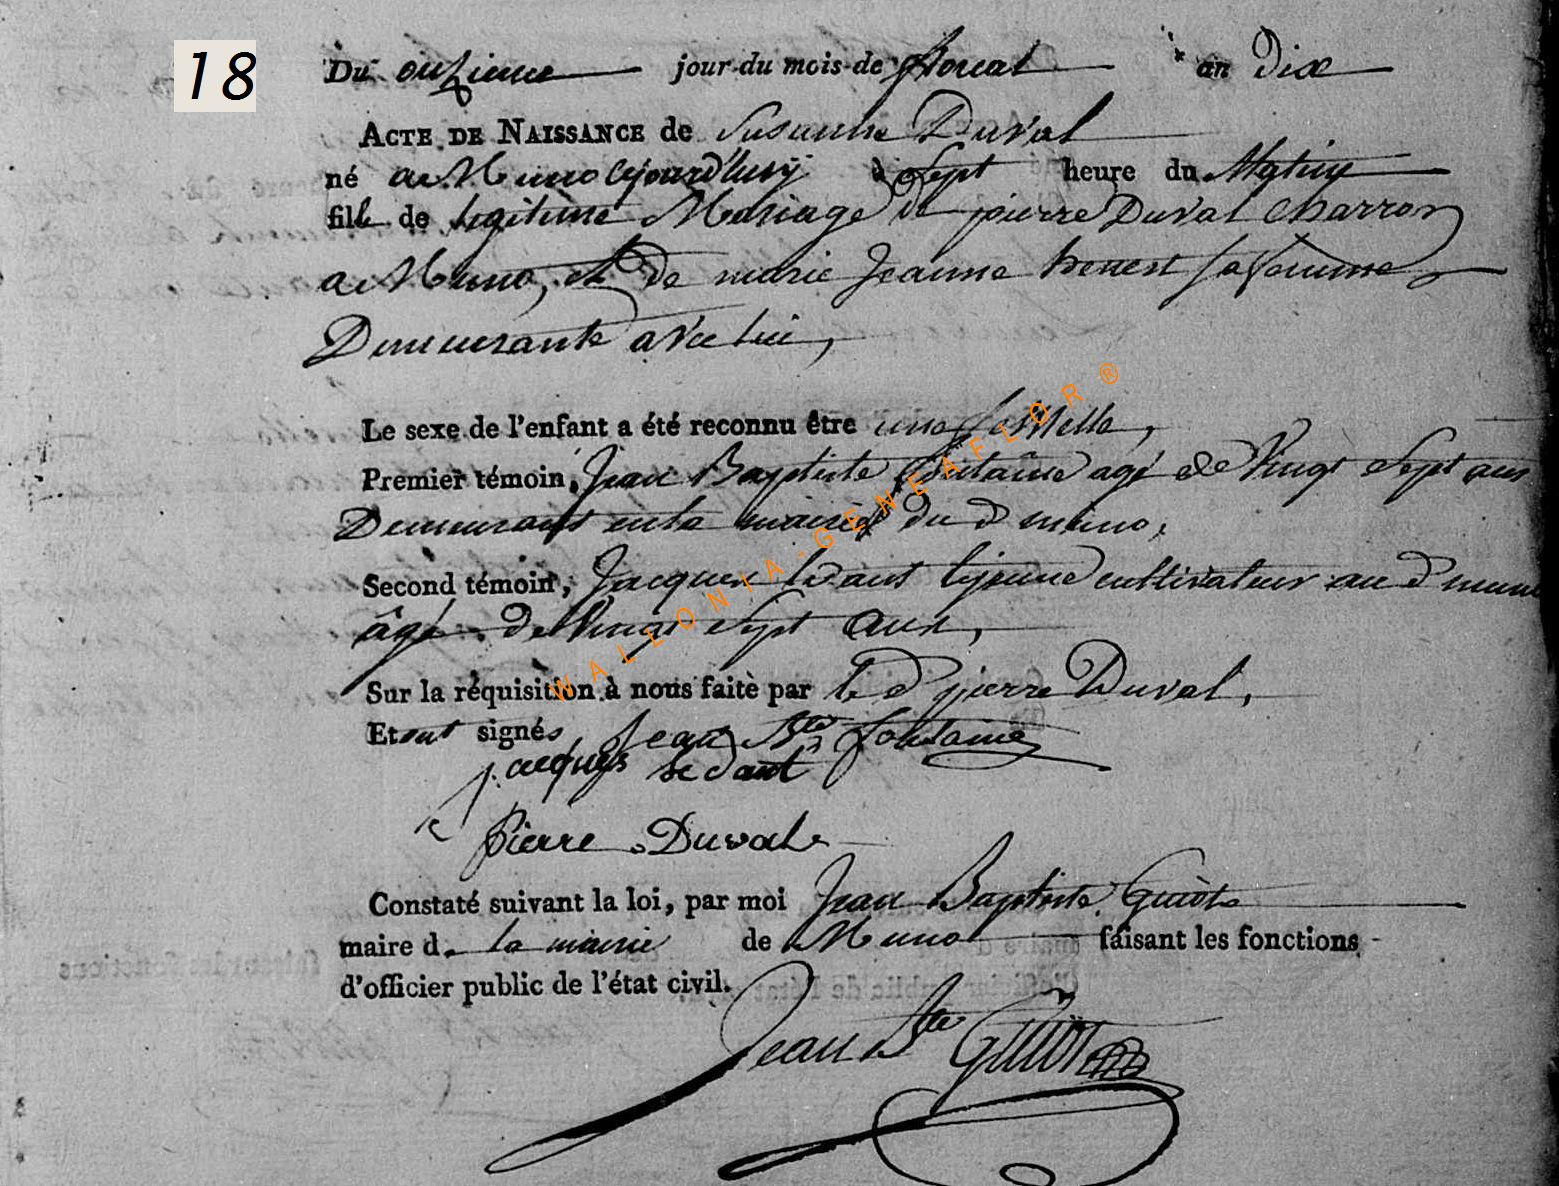 18
Du onzieme jour du mois de floreal an Dix
ACTE DE NAISSANCE de Susanne Duval
né a Muno cejourd'huy à Sept heure du Matin
fille de legitime Mariage de pierre Duval charron
a Muno, et de marie Jeanne henest sa femme
Demeurante avec lui,
Le sexe de l'enfant a été reconnu être une femelle,
Premier témoin, Jean Baptiste fontaine agé de Vingt Sept ans
Demeurant en la mairie du d muno,
Second témoin, Jacques ledant lejeune cultivateur au d muno
âgé de Vingt Sept ans,
Sur la réquisition à nous faite par le d pierre Duval,
Et ont signés Jean Bte fontaine
jacques ledant
Pierre Duval
Constaté suivant la loi, par moi Jean Baptiste Guiot
maire d. la mairie de Muno faisant les fonctions
d'officier public de l'état civil.
Jean Bte Guiot
WALLONIA-GENEAFLOR ®